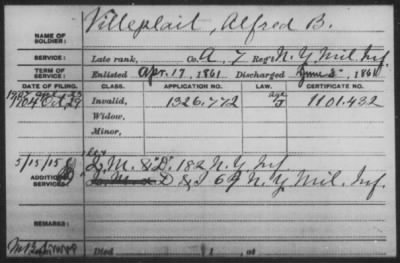 Villeplait, Alfred B.
NAME OF SOLDIER:
SERVICE: Late rank, Co. A, 7 Reg't N.Y. Mil. Inf.
TERM OF SERVICE: Enlisted Apr. 17, 1861 Discharged June 3, 1861
DATE OF FILING. CLASS. APPLICATION NO. LAW. CERTIFICATE NO.
1904 Oct. 29 Invalid, 1326.772 1101.432
Widow,
Minor,
5/15/15
ADDITIONAL SERVICES: L. M. & "D" 182 N.Y. Inf
D & 69 N.Y. Mil. Inf.
REMARKS:
Died , 1 , at